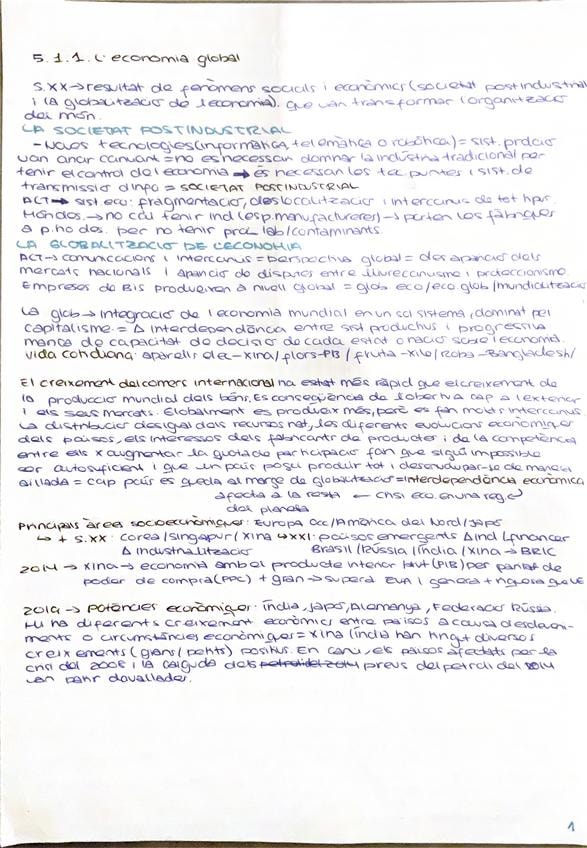 5.1.1. L'economia global
S.XX→resultat de fenòmens socials i econòmics (societat postindustrial
i la globalització de l'economia). que van transformar l'organització
del món.
LA SOCIETAT POSTINDUSTRIAL
-Noves tecnologies (informàtica, telemàtica o robòtica) = sist. prdcio
van anar canviant = no es necessari dominar la indústria tradicional per
tenir el control de l'economia → és necessari les tec. puntes i sist. de
transmissió d'info = SOCIETAT POSTINDUSTRIAL
ACT→ sist. eco: fragmentació, deslocalització i intercanvis de tot tipus.
Món des. → no cal tenir ind (esp. manufactureres) → porten les fàbriques
a p.ho des. per no tenir prob. lab/contaminants.
LA GLOBALITZACIÓ DE L'ECONOMIA
ACT→comunicacions i intercanvis = perspectiva global = desaparició dels
mercats nacionals i aparició de disputes entre lliurecanvisme i proteccionisme.
Empreses de BiS produeixen a nivell global = glob. eco/eco. glob/mundialització
La glob → integració de l'economia mundial en un sol sistema, dominat pel
capitalisme = Δ interdependència entre sist productius i progressiva
manca de capacitat de decisió de cada estat o nació sobre l'economia.
Vida cotidiana: aparells elec-Xina/flors-PB/fruita-Xile/Roba-Bangladesh/
El creixement del comerç internacional ha estat més ràpid que el creixement de
la producció mundial dels béns. És conseqüència de l'obertura cap a l'exterior
i els seus mercats. Globalment es produeix més, però es fan molts intercanvis
La distribució desigual dels recursos nat, les diferents evolucions econòmiques
dels països, els interessos dels fabricants de productes i de la competència
entre ells x augmentar la quota de participació fan que sigui impossible
ser autosuficient i que un país pugui produir tot i desenvolupar-se de manera
aïllada = cap país es queda al marge de globalització = interdependència econòmica
afecta a la resta ← crisi eco. en una reg ↵
del planeta
Principals àrees socioeconòmiques: Europa Occ/Amèrica del Nord/Japó
↳ + S.XX: Corea/Singapur/Xina ↪XXI: països emergents Δind i financer
Δ industrialització Brasil/Rússia/Índia/Xina → BRIC
2014 → Xina → economia amb el producte interior brut (PIB) per paritat de
poder de compra (PPC) + gran → supera EUA i genera + riquesa que UE
2019 → Potències econòmiques: Índia, Japó, Alemanya, Federació Rússia.
Hi ha diferents creixement econòmics entre països a causa d'esdeveni-
ments o circumstàncies econòmiques = Xina/Índia han tingut diversos
creixements (grans/petits) positius. En canvi, els països afectats per la
crisi del 2008 i la caiguda dels petroli del 2014 preus del petroli del 2014
van patir davallades.
1